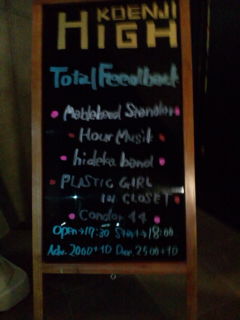 KOENJI
HIGH
Total Feedback
Hour Musik
hideka band
PLASTIC GIRL
IN CLOSET
Condor 44
Open→17:30 Start→18:00
Adv. 2000+1D Door. 2500+1D